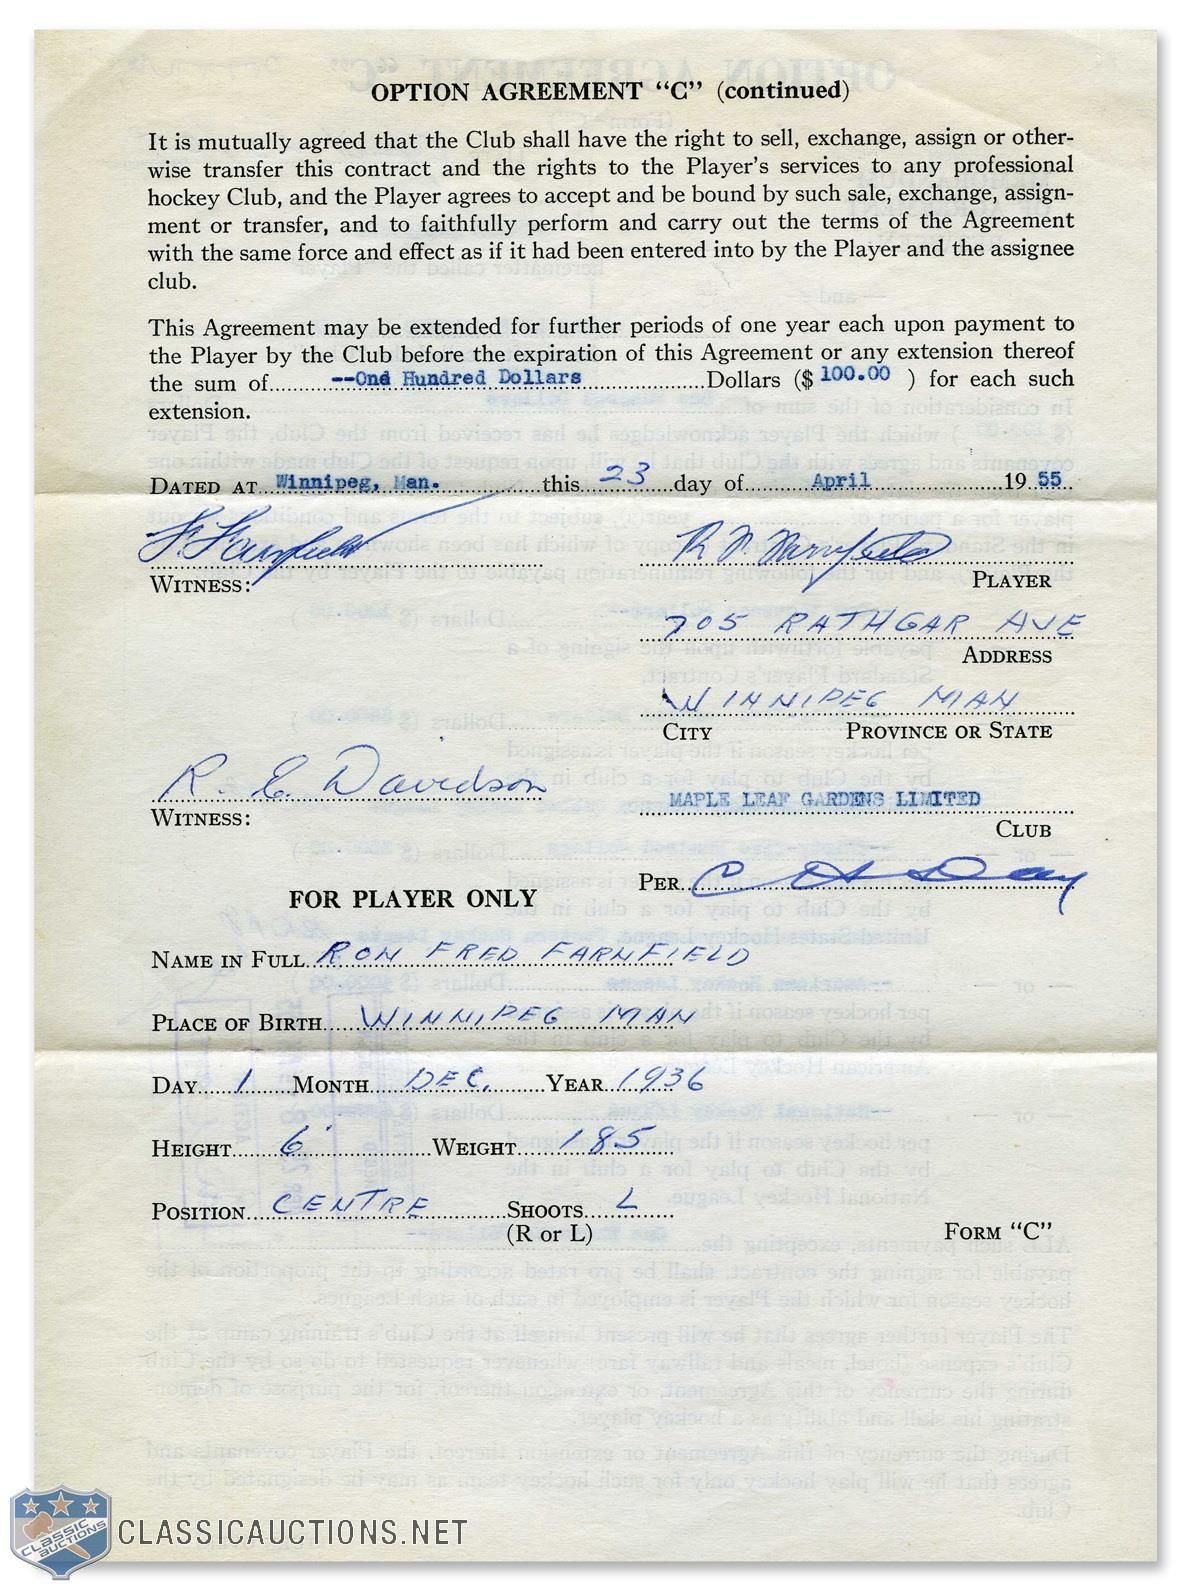 OPTION AGREEMENT “C” (continued)
It is mutually agreed that the Club shall have the right to sell, exchange, assign or other-
wise transfer this contract and the rights to the Player’s services to any professional
hockey Club, and the Player agrees to accept and be bound by such sale, exchange, assign-
ment or transfer, and to faithfully perform and carry out the terms of the Agreement
with the same force and effect as if it had been entered into by the Player and the assignee
club.
This Agreement may be extended for further periods of one year each upon payment to
the Player by the Club before the expiration of this Agreement or any extension thereof
the sum of --One Hundred Dollars Dollars ($ 100.00 ) for each such
extension.
DATED AT Winnipeg, Man. this 23 day of April 19 55
Farnfield R Farnfield
WITNESS: PLAYER
705 RATHGAR AVE
ADDRESS
WINNIPEG MAN
CITY PROVINCE OR STATE
R. E. Davidson MAPLE LEAF GARDENS LIMITED
WITNESS: CLUB
PER C H Day
FOR PLAYER ONLY
NAME IN FULL RON FRED FARNFIELD
PLACE OF BIRTH WINNIPEG MAN
DAY 1 MONTH DEC. YEAR 1936
HEIGHT 6' WEIGHT 185
POSITION CENTRE SHOOTS L
(R or L) FORM “C”
CLASSIC AUCTIONS
CLASSICAUCTIONS.NET